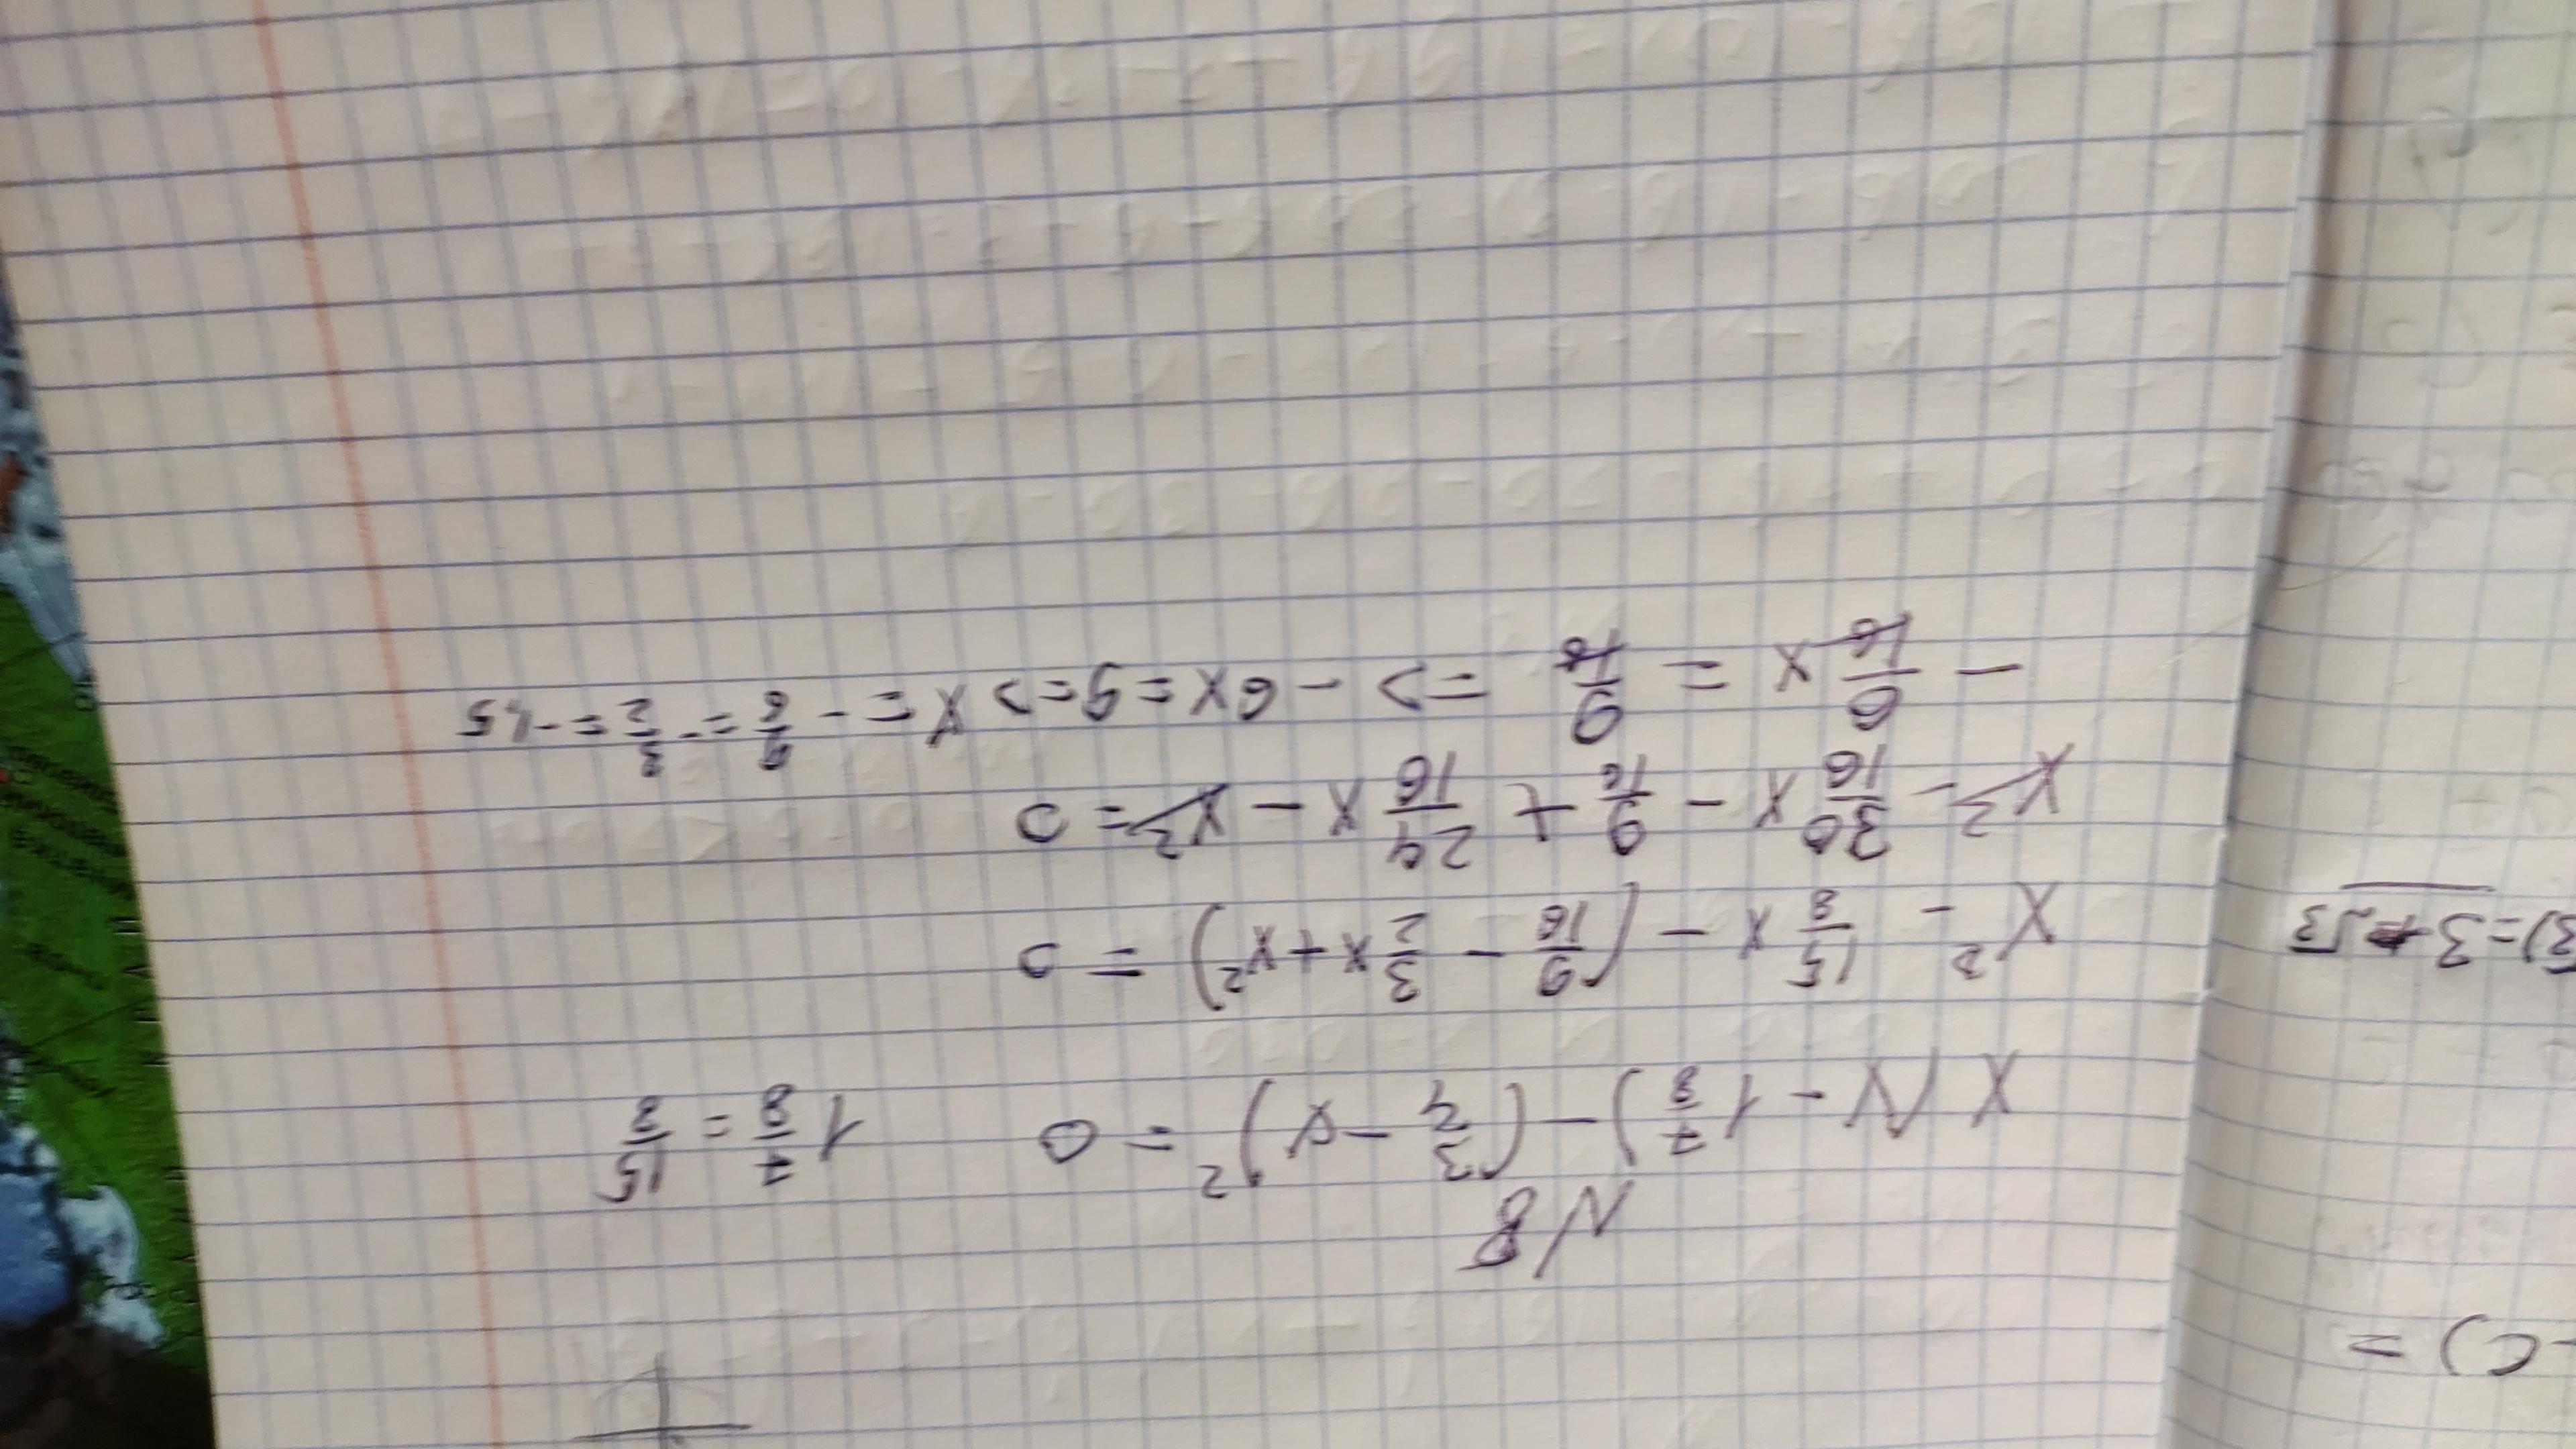 N8
x(x - 1 7/8) - (3/4 - x)² = 0    1 7/8 = 15/8
x² - 15/8 x - (9/16 - 3/2 x + x²) = 0
x² - 30/16 x - 9/16 + 24/16 x - x² = 0
- 6/16 x = 9/16 => - 6x = 9 => x = - 9/6 = - 3/2 = -1,5
3) = 3 + √3
-c) =